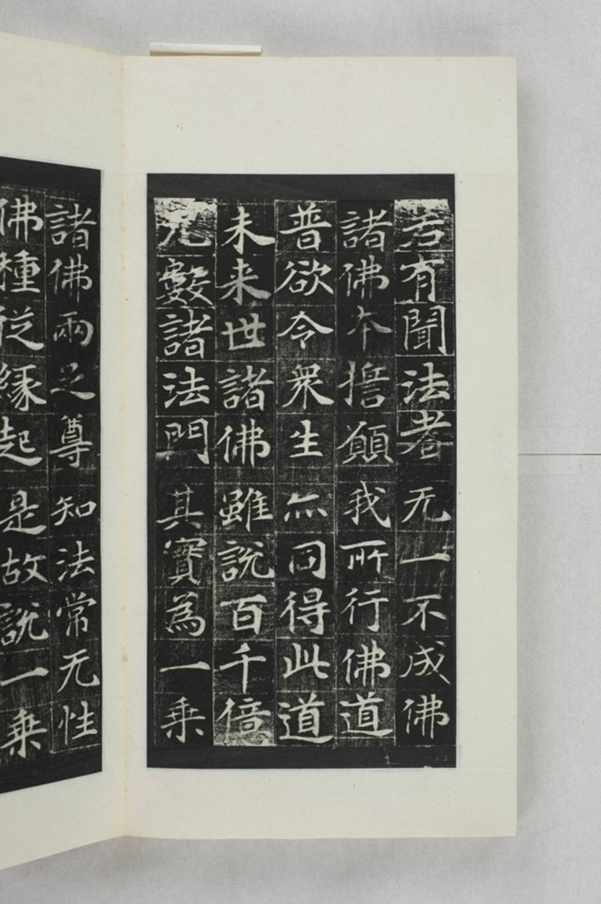 若有聞法者无一不成佛
諸佛本擔願我所行佛道
普欲令衆生亦同得此道
未来世諸佛雖說百千倍
无數諸法門其實為一乗
諸佛兩之尊知法常无性
佛種従縁起是故說一乗